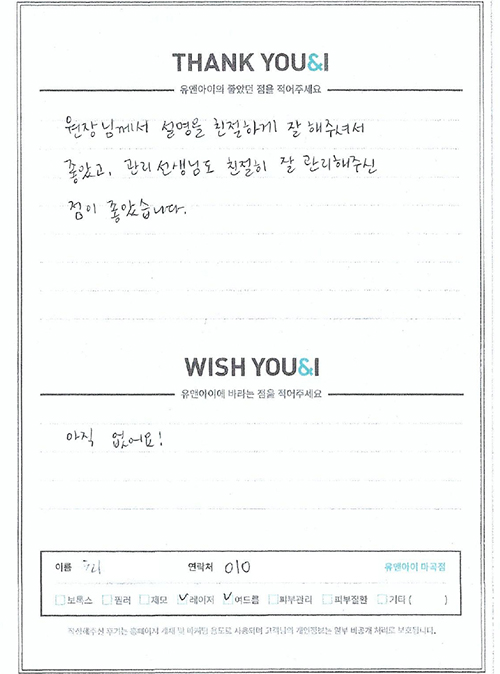 THANK YOU&I
유앤아이의 좋았던 점을 적어주세요
원장님께서 설명을 친절하게 잘 해주셔서
좋았고, 관리 선생님도 친절히 잘 관리해주신
점이 좋았습니다.
WISH YOU&I
유앤아이에 바라는 점을 적어주세요
아직 없어요!
이름 연락처 010 유앤아이 마곡점
보톡스 필러 제모 레이저 여드름 피부관리 피부질환 기타 ( )
작성해주신 후기는 홈페이지 게재 및 마케팅 용도로 사용되며 고객님의 개인정보는 일부 비공개 처리로 보호됩니다.